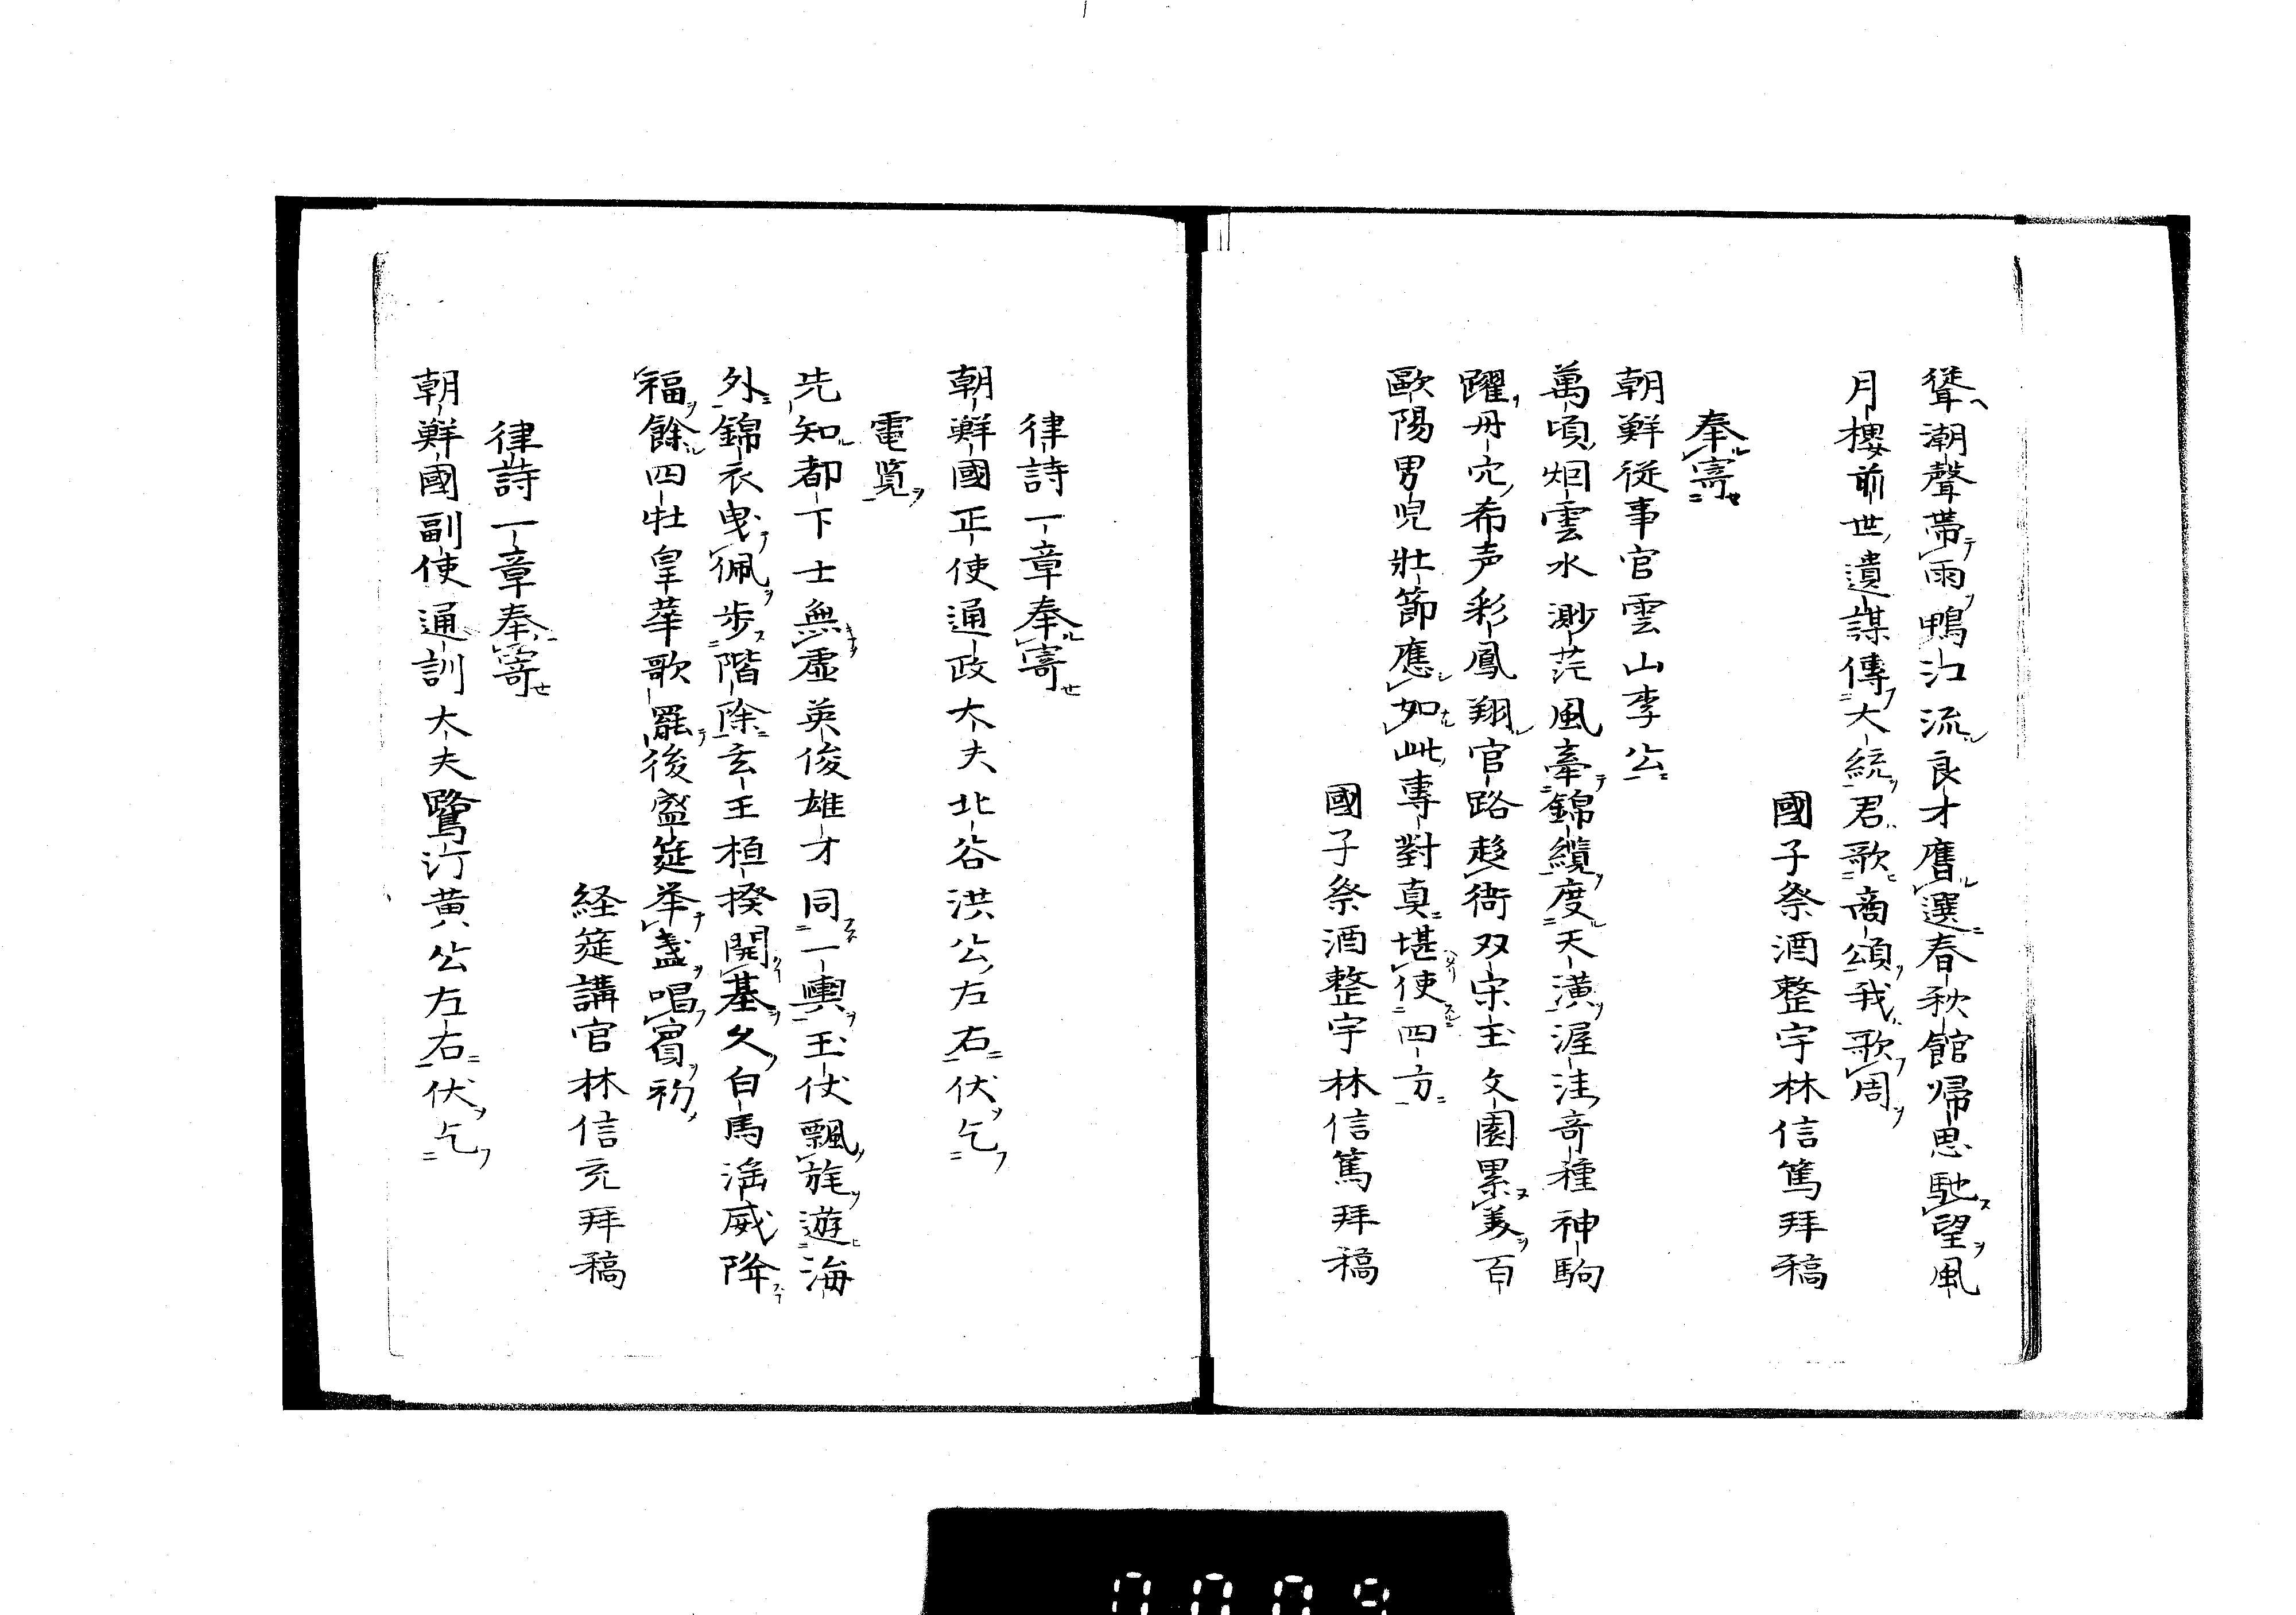 聳潮聲帶雨鴨江流良才膺選春秋館帰思馳望風
月樓前世遺謀傳大統君歌商頌我歌周
國子祭酒整宇林信篤拜稿
奉寄
朝鮮從事官雲山李公
萬頃烟雲水渺茫風牽錦纜度天潢渥洼奇種神駒
躍丹穴希声彩鳳翔官路趍衙双宋玉文園累美百
歐陽男児壯節應如此專對真堪使四方
國子祭酒整宇林信篤拜稿
律詩一章奉寄
朝鮮國正使通政大夫北谷洪公左右伏乞
電覧
先知都下士無虚英俊雄才同一輿玉伏飄旄遊海
外錦衣曳佩步階除玄王桓撥開基久白馬淫威降
福餘四牡皇華歌罷後盛筵举盞唱賓初
経筵講官林信充拜稿
律詩一章奉寄
朝鮮國副使通訓大夫鷺汀黄公左右伏乞
0009